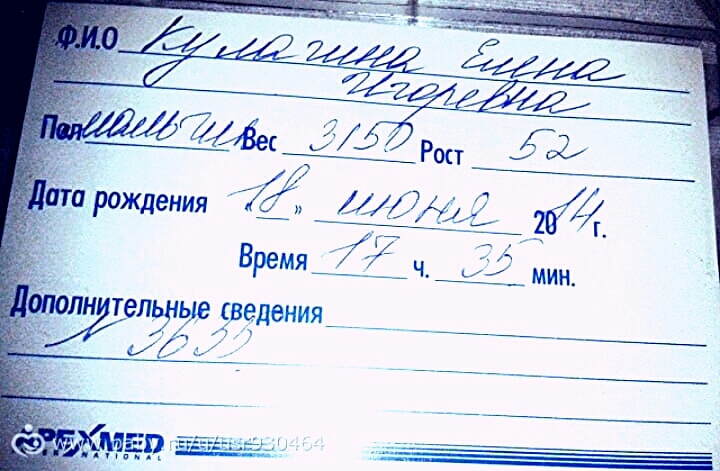 Ф.И.О Кулагина Елена
Игоревна
Пол мальчик Вес 3150 Рост 52
Дата рождения «18» июня 2014 г.
Время 17 ч. 35 мин.
Дополнительные сведения
N 3655
РЕХMED
INTERNATIONAL
www.baby.ru/u/usr930464